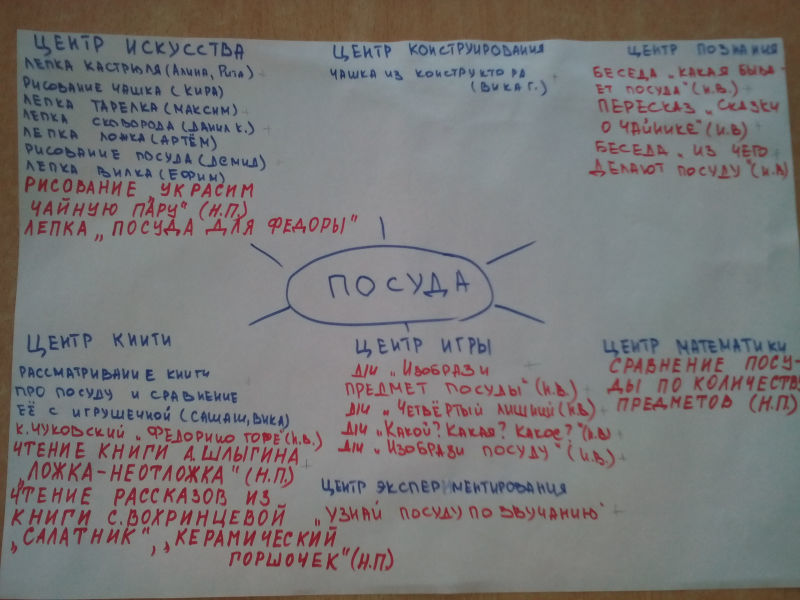 ЦЕНТР ИСКУССТВА
ЛЕПКА КАСТРЮЛЯ (АЛИНА, РИТА)
РИСОВАНИЕ ЧАШКА (КИРА)
ЛЕПКА ТАРЕЛКА (МАКСИМ)
ЛЕПКА СКОВОРОДА (ДАНИЛ К.)
ЛЕПКА ЛОЖКА (АРТЁМ)
РИСОВАНИЕ ПОСУДА (ДЕМИД)
ЛЕПКА ВИЛКА (ЕФРИМ)
РИСОВАНИЕ „УКРАСИМ
ЧАЙНУЮ ПАРУ" (Н.П.)
ЛЕПКА „ПОСУДА ДЛЯ ФЕДОРЫ"
ЦЕНТР КОНСТРУИРОВАНИЯ
ЧАШКА ИЗ КОНСТРУКТОРА
(ВИКА Г.)
ЦЕНТР ПОЗНАНИЯ
БЕСЕДА „КАКАЯ БЫВА-
ЕТ ПОСУДА" (И.В.)
ПЕРЕСКАЗ „СКАЗКИ
О ЧАЙНИКЕ" (И.В)
БЕСЕДА „ИЗ ЧЕГО
ДЕЛАЮТ ПОСУДУ" (И.В)
ПОСУДА
ЦЕНТР КНИГИ
РАССМАТРИВАНИЕ КНИГИ
ПРО ПОСУДУ И СРАВНЕНИЕ
ЕЁ С ИГРУШЕЧНОЙ (САШАШ, ВИКА)
К. ЧУКОВСКИЙ „ФЕДОРИНО ГОРЕ" (И.В.)
ЧТЕНИЕ КНИГИ А. ШЛЫГИНА
„ЛОЖКА-НЕОТЛОЖКА" (Н.П.)
ЧТЕНИЕ РАССКАЗОВ ИЗ
КНИГИ С. ВОХРИНЦЕВОЙ
„САЛАТНИК", „КЕРАМИЧЕСКИЙ
ГОРШОЧЕК" (Н.П.)
ЦЕНТР ИГРЫ
Д/И „ИЗОБРАЗИ
ПРЕДМЕТ ПОСУДЫ" (И.В.)
Д/И „ЧЕТВЁРТЫЙ ЛИШНИЙ" (И.В)
Д/И „КАКОЙ? КАКАЯ? КАКОЕ?" (И.В)
Д/И „ИЗОБРАЗИ ПОСУДУ" (И.В.)
ЦЕНТР ЭКСПЕРИМЕНТИРОВАНИЯ
„УЗНАЙ ПОСУДУ ПО ЗВУЧАНИЮ"
ЦЕНТР МАТЕМАТИКИ
СРАВНЕНИЕ ПОСУ-
ДЫ ПО КОЛИЧЕСТВУ
ПРЕДМЕТОВ (Н.П.)